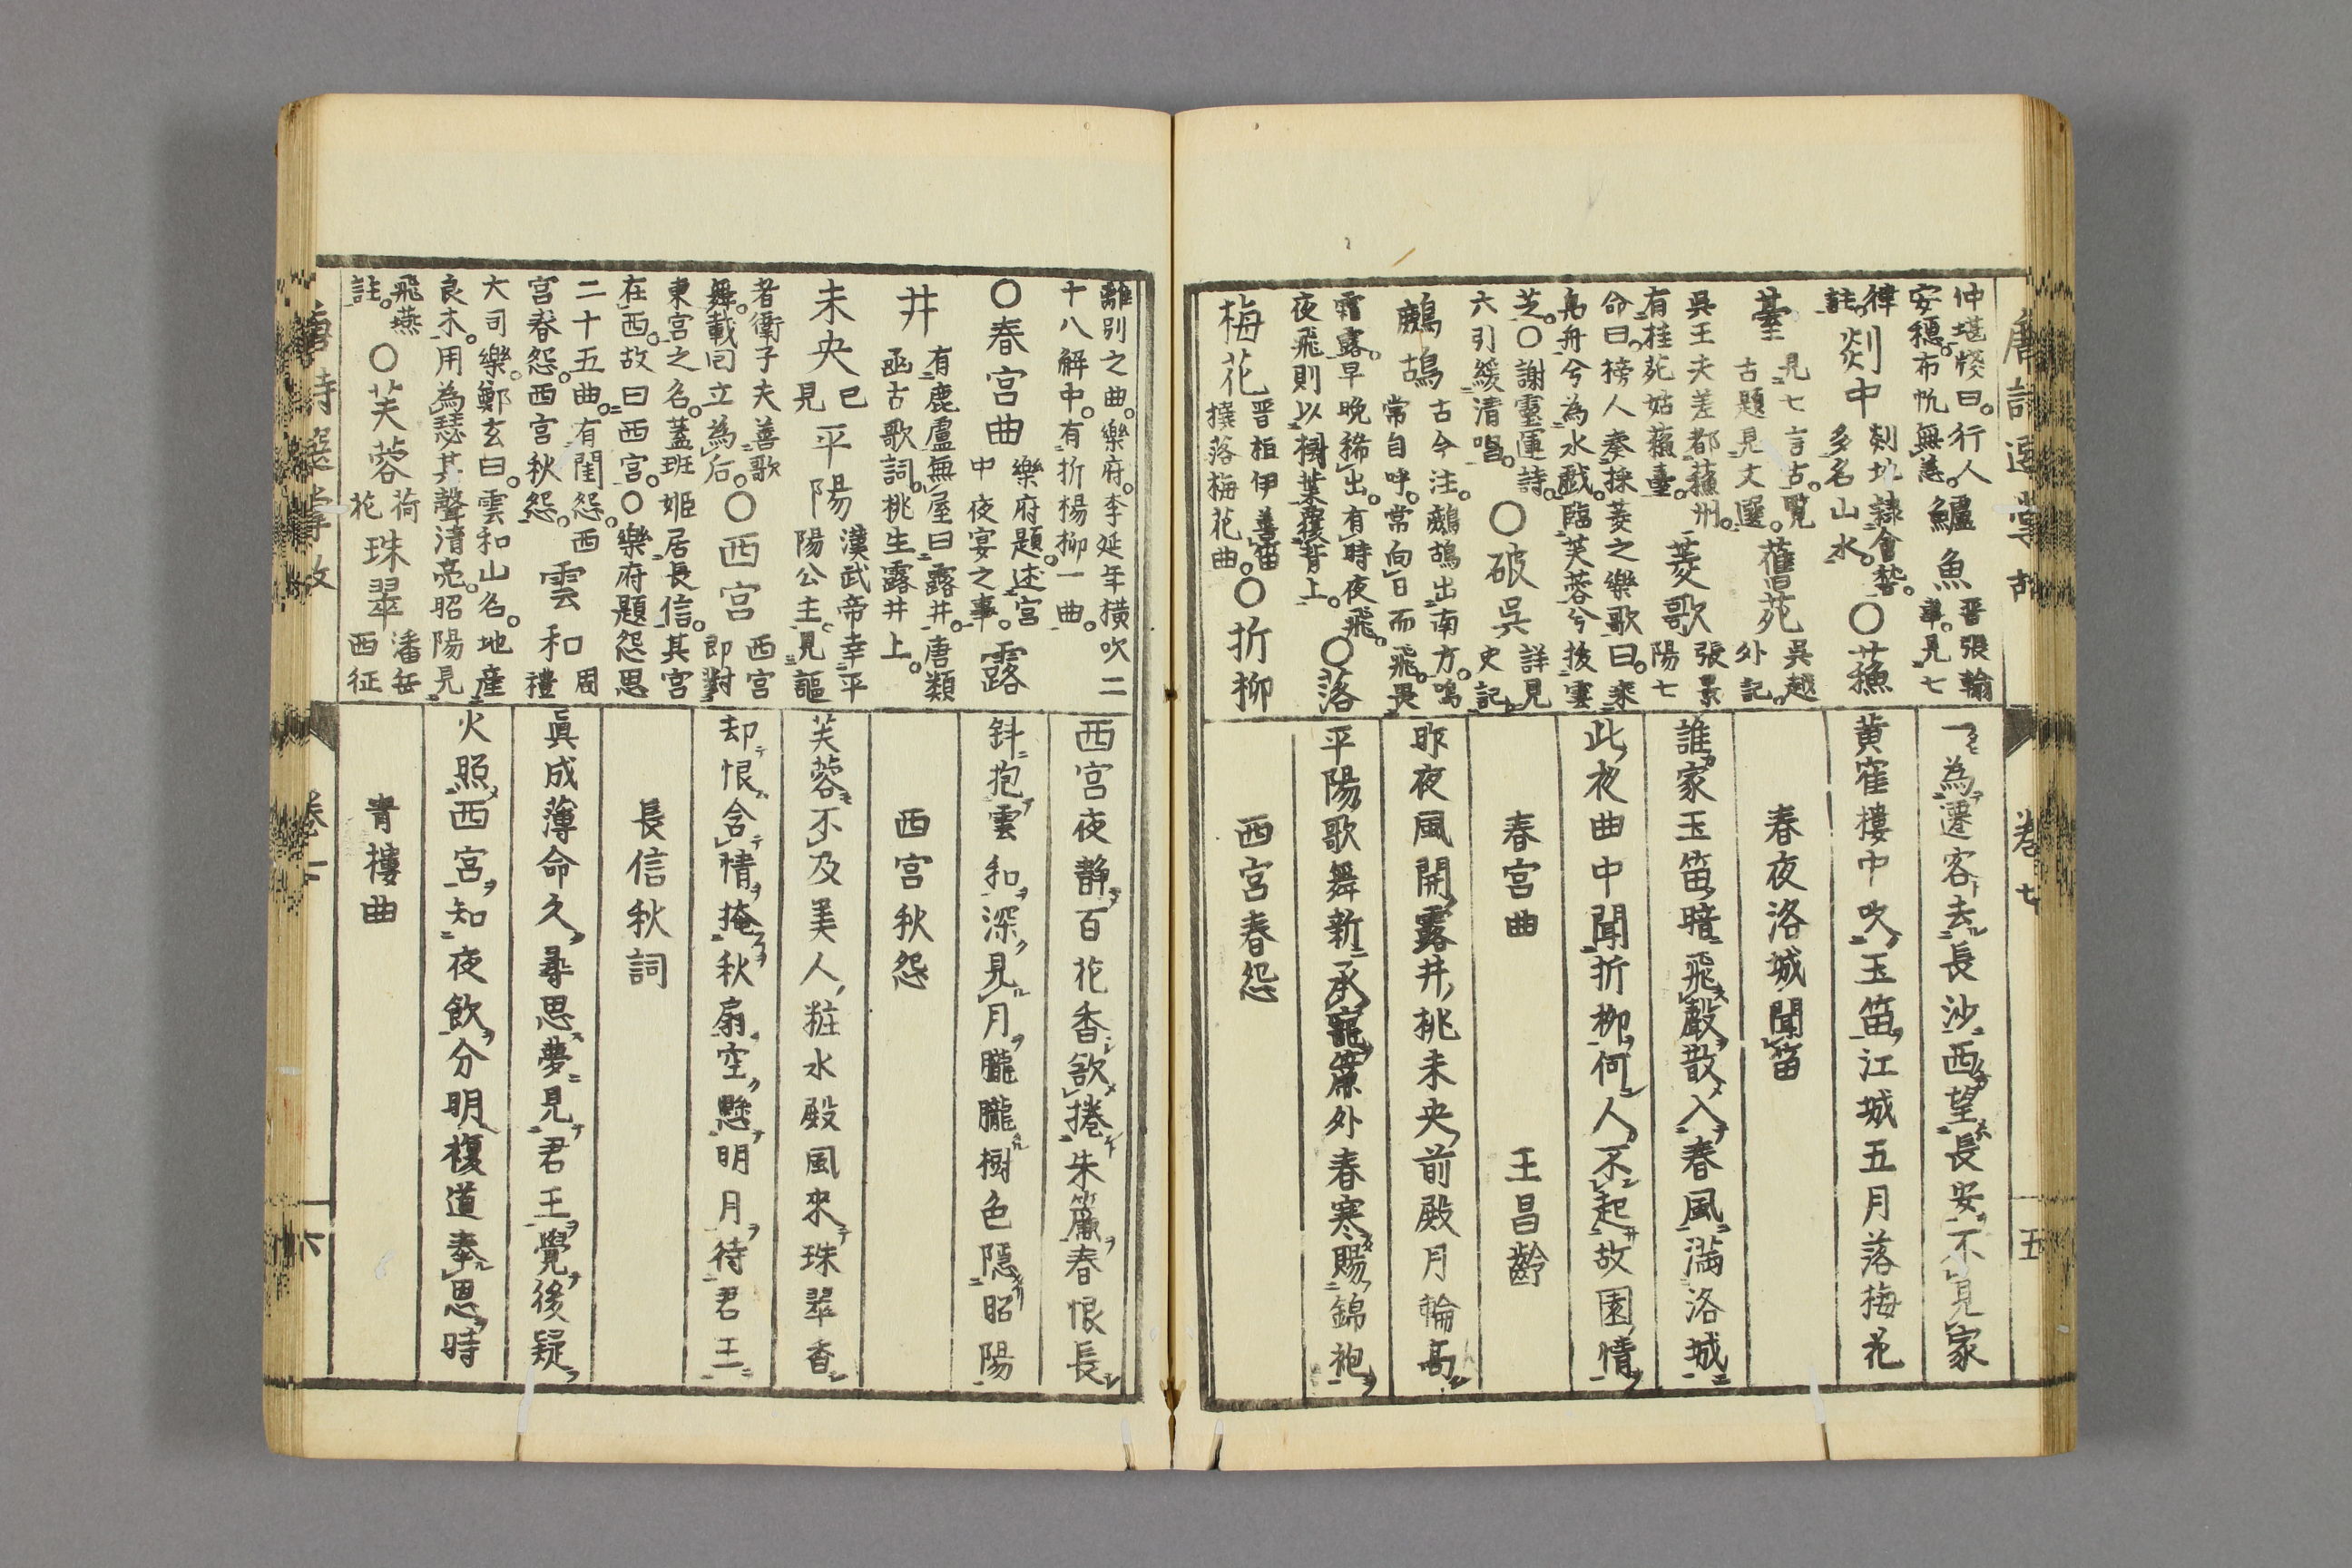 唐詩選掌故
卷七
五
仲堪牋曰。行人
安穩。布帆無恙。
鱸魚
晋張翰
事。見七
律
註。
剡中
剡地隷會稽。
多名山水。
〇蘇
臺
見七言古。覧
古題見文選。
舊苑
吳越
外記。
吳王夫差都蘓州。
有桂苑姑蘓臺。
菱歌
張景
陽七
命曰。榜人奏採菱之樂歌曰。乘
鳧舟兮為水戯。臨芙蓉兮拔靈
芝。〇謝靈運詩。
六引緩清唱。
〇破吳
詳見
史記。
鷓鴣
古今注。鷓鴣出南方。鳴
常自呼。常向日而飛。畏
霜露。早晚稀出。有時夜飛。
夜飛則以樹葉覆背上。
〇落
梅花
晋桓伊善笛
撰落梅花曲。
〇折柳
一為遷客去長沙西望長安不見家
黄寉樓中吹玉笛江城五月落梅花
春夜洛城聞笛
誰家玉笛暗飛聲散入春風滿洛城
此夜曲中聞折柳何人不起故園情
春宮曲　王昌齡
昨夜風開露井桃未央前殿月輪高
平陽歌舞新承寵簾外春寒賜錦袍
西宮春怨
離別之曲。樂府。李延年橫吹二
十八解中。有折楊柳一曲。
〇春宮曲
樂府題。述宮
中夜宴之事。
露
井
有鹿盧無屋曰露井。唐類
函古歌詞。桃生露井上。
未央
已
見
平陽
漢武帝幸平
陽公主。見謳
者衛子夫善歌
舞。載囘立為后。
〇西宮
西宮
即對
東宮之名。蓋班姬居長信。其宮
在西。故曰西宮。〇樂府題怨思
二十五曲。有閨怨。西
宮春怨。西宮秋怨。
雲和
周
禮
大司樂。鄭玄曰。雲和山名。地産
良木。用為瑟其聲清亮。昭陽見
飛燕
註。
〇芙蓉
荷
花
珠翠
潘岳
西征
西宮夜靜百花香欲捲朱簾春恨長
斜抱雲和深見月朧朧樹色隱昭陽
西宮秋怨
芙蓉不及美人粧水殿風來珠翠香
却恨含情掩秋扇空懸明月待君王
長信秋詞
眞成薄命久尋思夢見君王覺後疑
火照西宮知夜飲分明複道奉恩時
青樓曲
唐詩選掌故
卷七
六